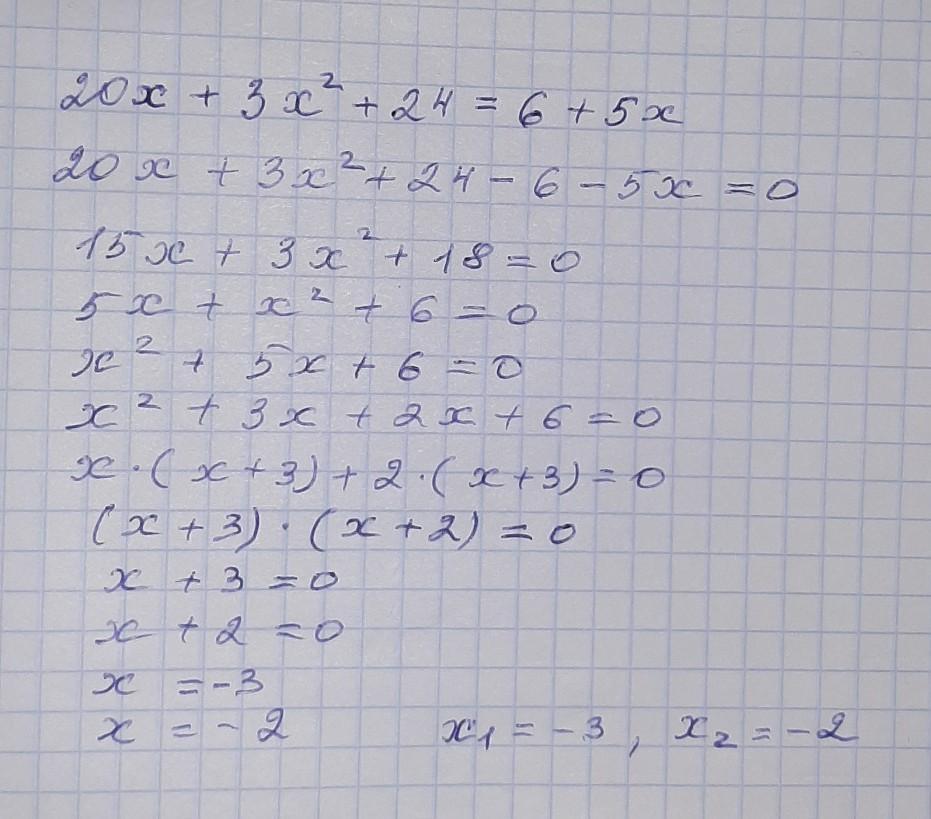 20x + 3x² + 24 = 6 + 5x
20x + 3x² + 24 - 6 - 5x = 0
15x + 3x² + 18 = 0
5x + x² + 6 = 0
x² + 5x + 6 = 0
x² + 3x + 2x + 6 = 0
x · (x + 3) + 2 · (x + 3) = 0
(x + 3) · (x + 2) = 0
x + 3 = 0
x + 2 = 0
x = -3
x = -2 x₁ = -3, x₂ = -2